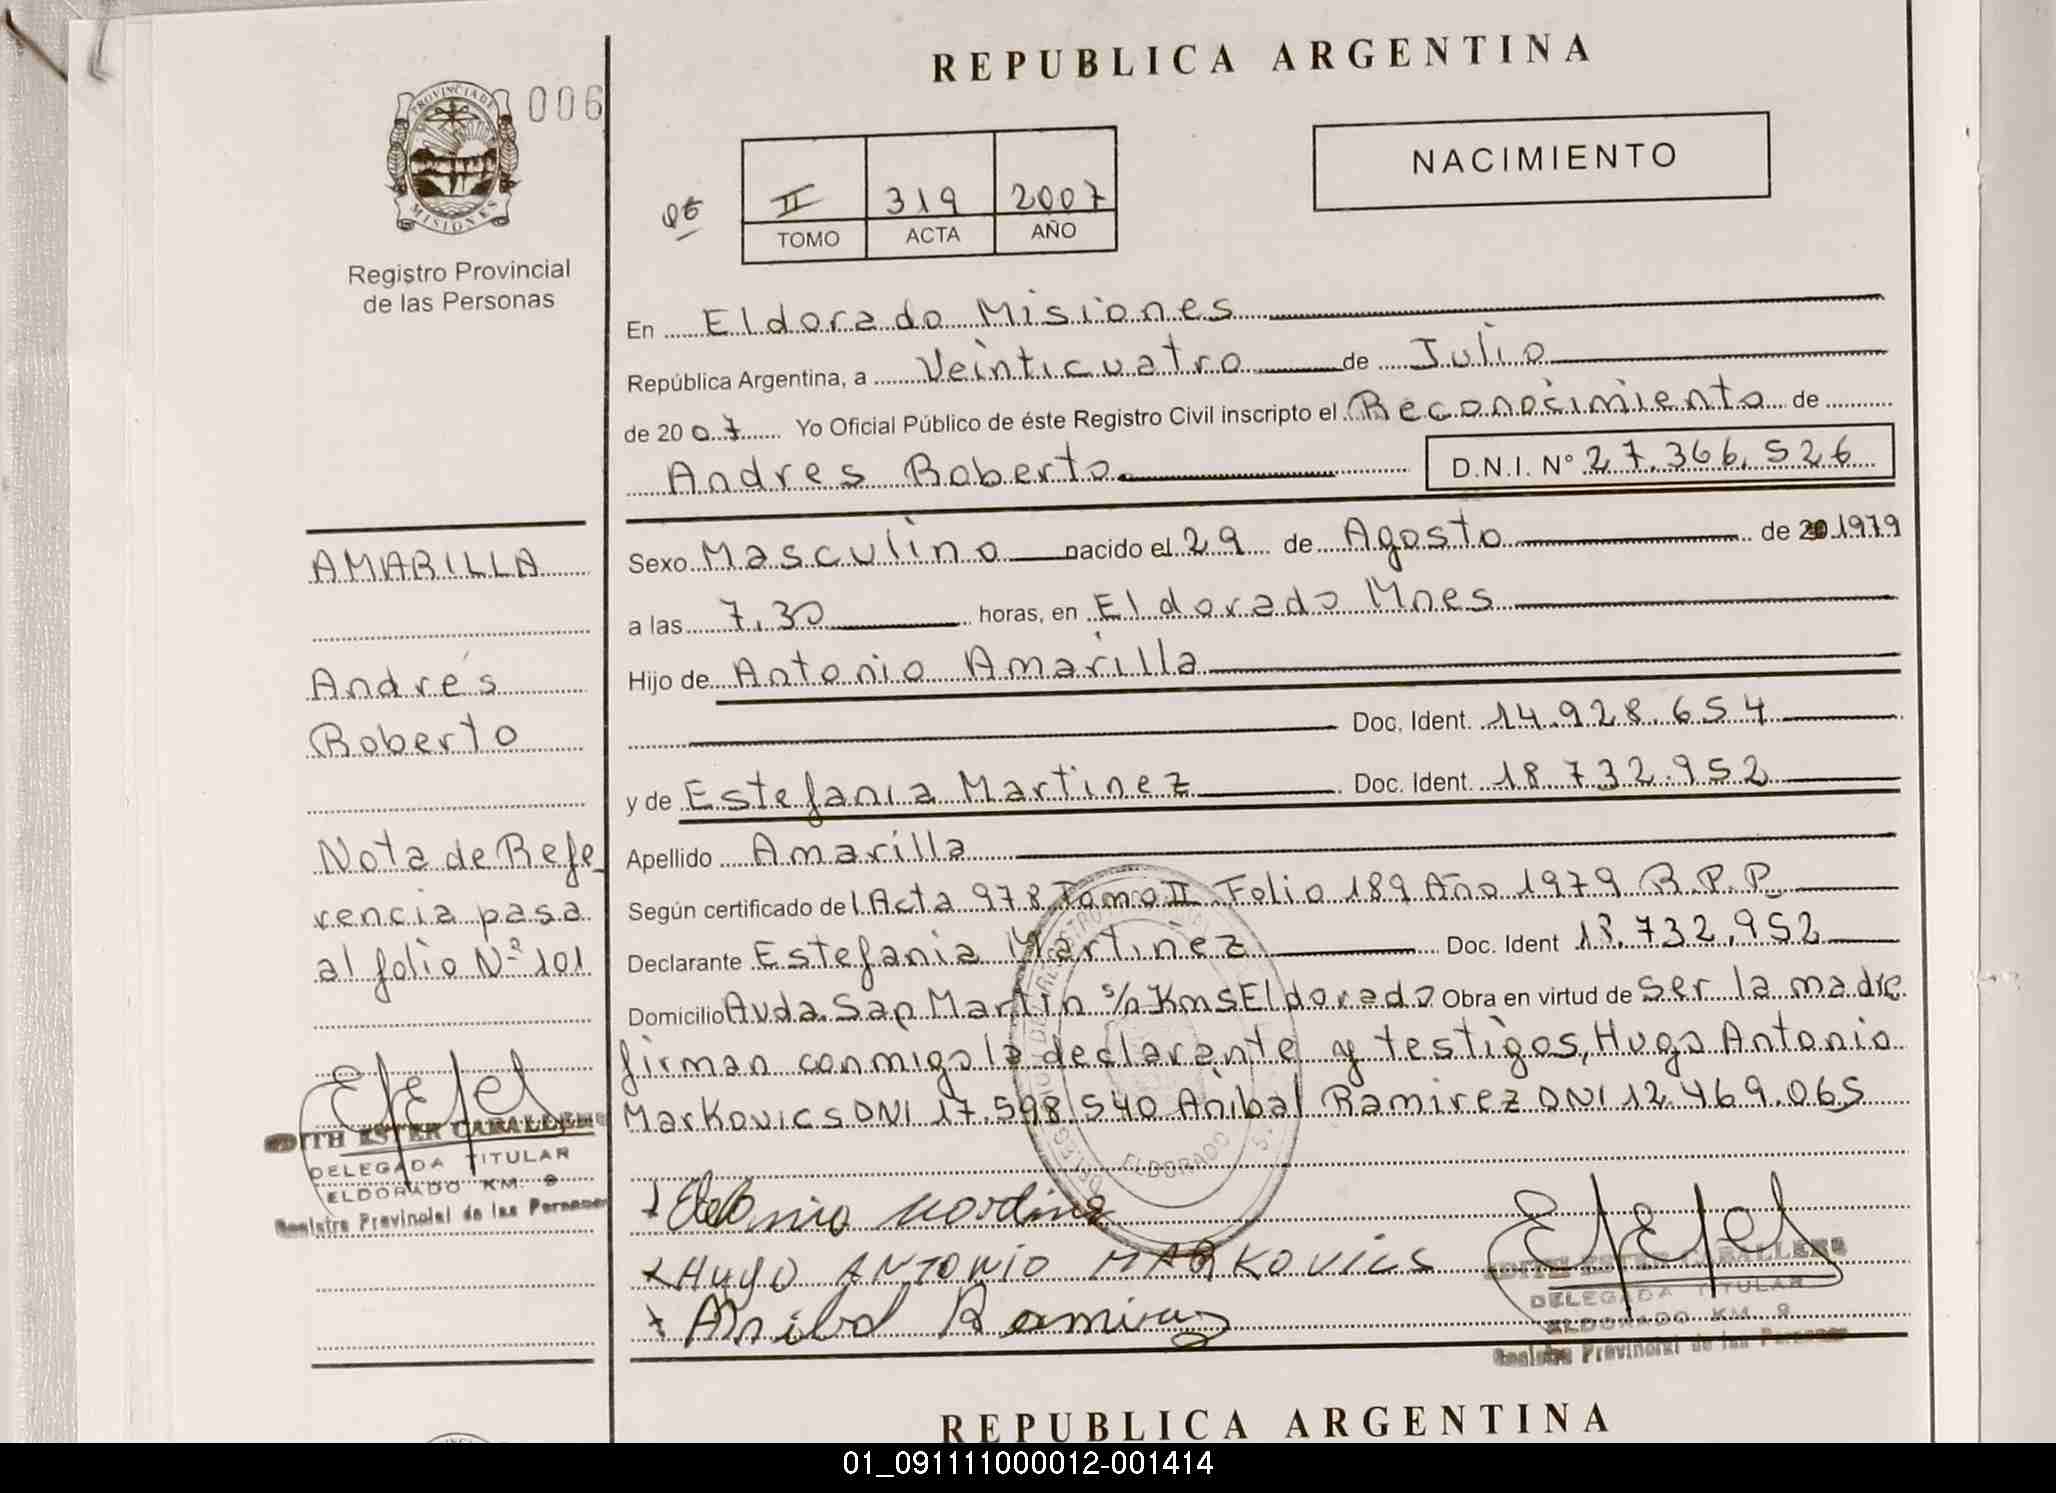 REPUBLICA ARGENTINA
PROVINCIA DE
MISIONES
006
NACIMIENTO
II 319 2007
TOMO ACTA AÑO
Registro Provincial
de las Personas
En Eldorado Misiones
República Argentina, a Veinticuatro de Julio
de 2007 Yo Oficial Público de éste Registro Civil inscripto el Reconocimiento de
Andres Roberto D.N.I. N° 27.366.526
Sexo Masculino nacido el 29 de Agosto de 20 1979
a las 7.30 horas, en Eldorado Mnes
Hijo de Antonio Amarilla
Doc. Ident. 14.928.654
y de Estefania Martinez Doc. Ident. 18.732.952
Apellido Amarilla
Según certificado del Acta 978 Tomo II Folio 189 Año 1979 R.P.P.
Declarante Estefania Martinez Doc. Ident 18.732.952
Domicilio Avda. San Martin s/n Km5 Eldorado Obra en virtud de ser la madre
firman conmigo la declarante y testigos, Hugo Antonio
Markovics DNI 17.598.540 Anibal Ramirez DNI 12.469.065
ELDORADO
HUGO ANTONIO MARKOVICS
Anibal Ramirez
EDITH ESTER CABALLERO
DELEGADA TITULAR
ELDORADO KM. 9
Registro Provincial de las Personas
AMARILLA
Andrés
Roberto
Nota de Refe
rencia pasa
al folio Nº 101
EDITH ESTER CABALLERO
DELEGADA TITULAR
ELDORADO KM. 9
Registro Provincial de las Personas
REPUBLICA ARGENTINA
01_091111000012-001414